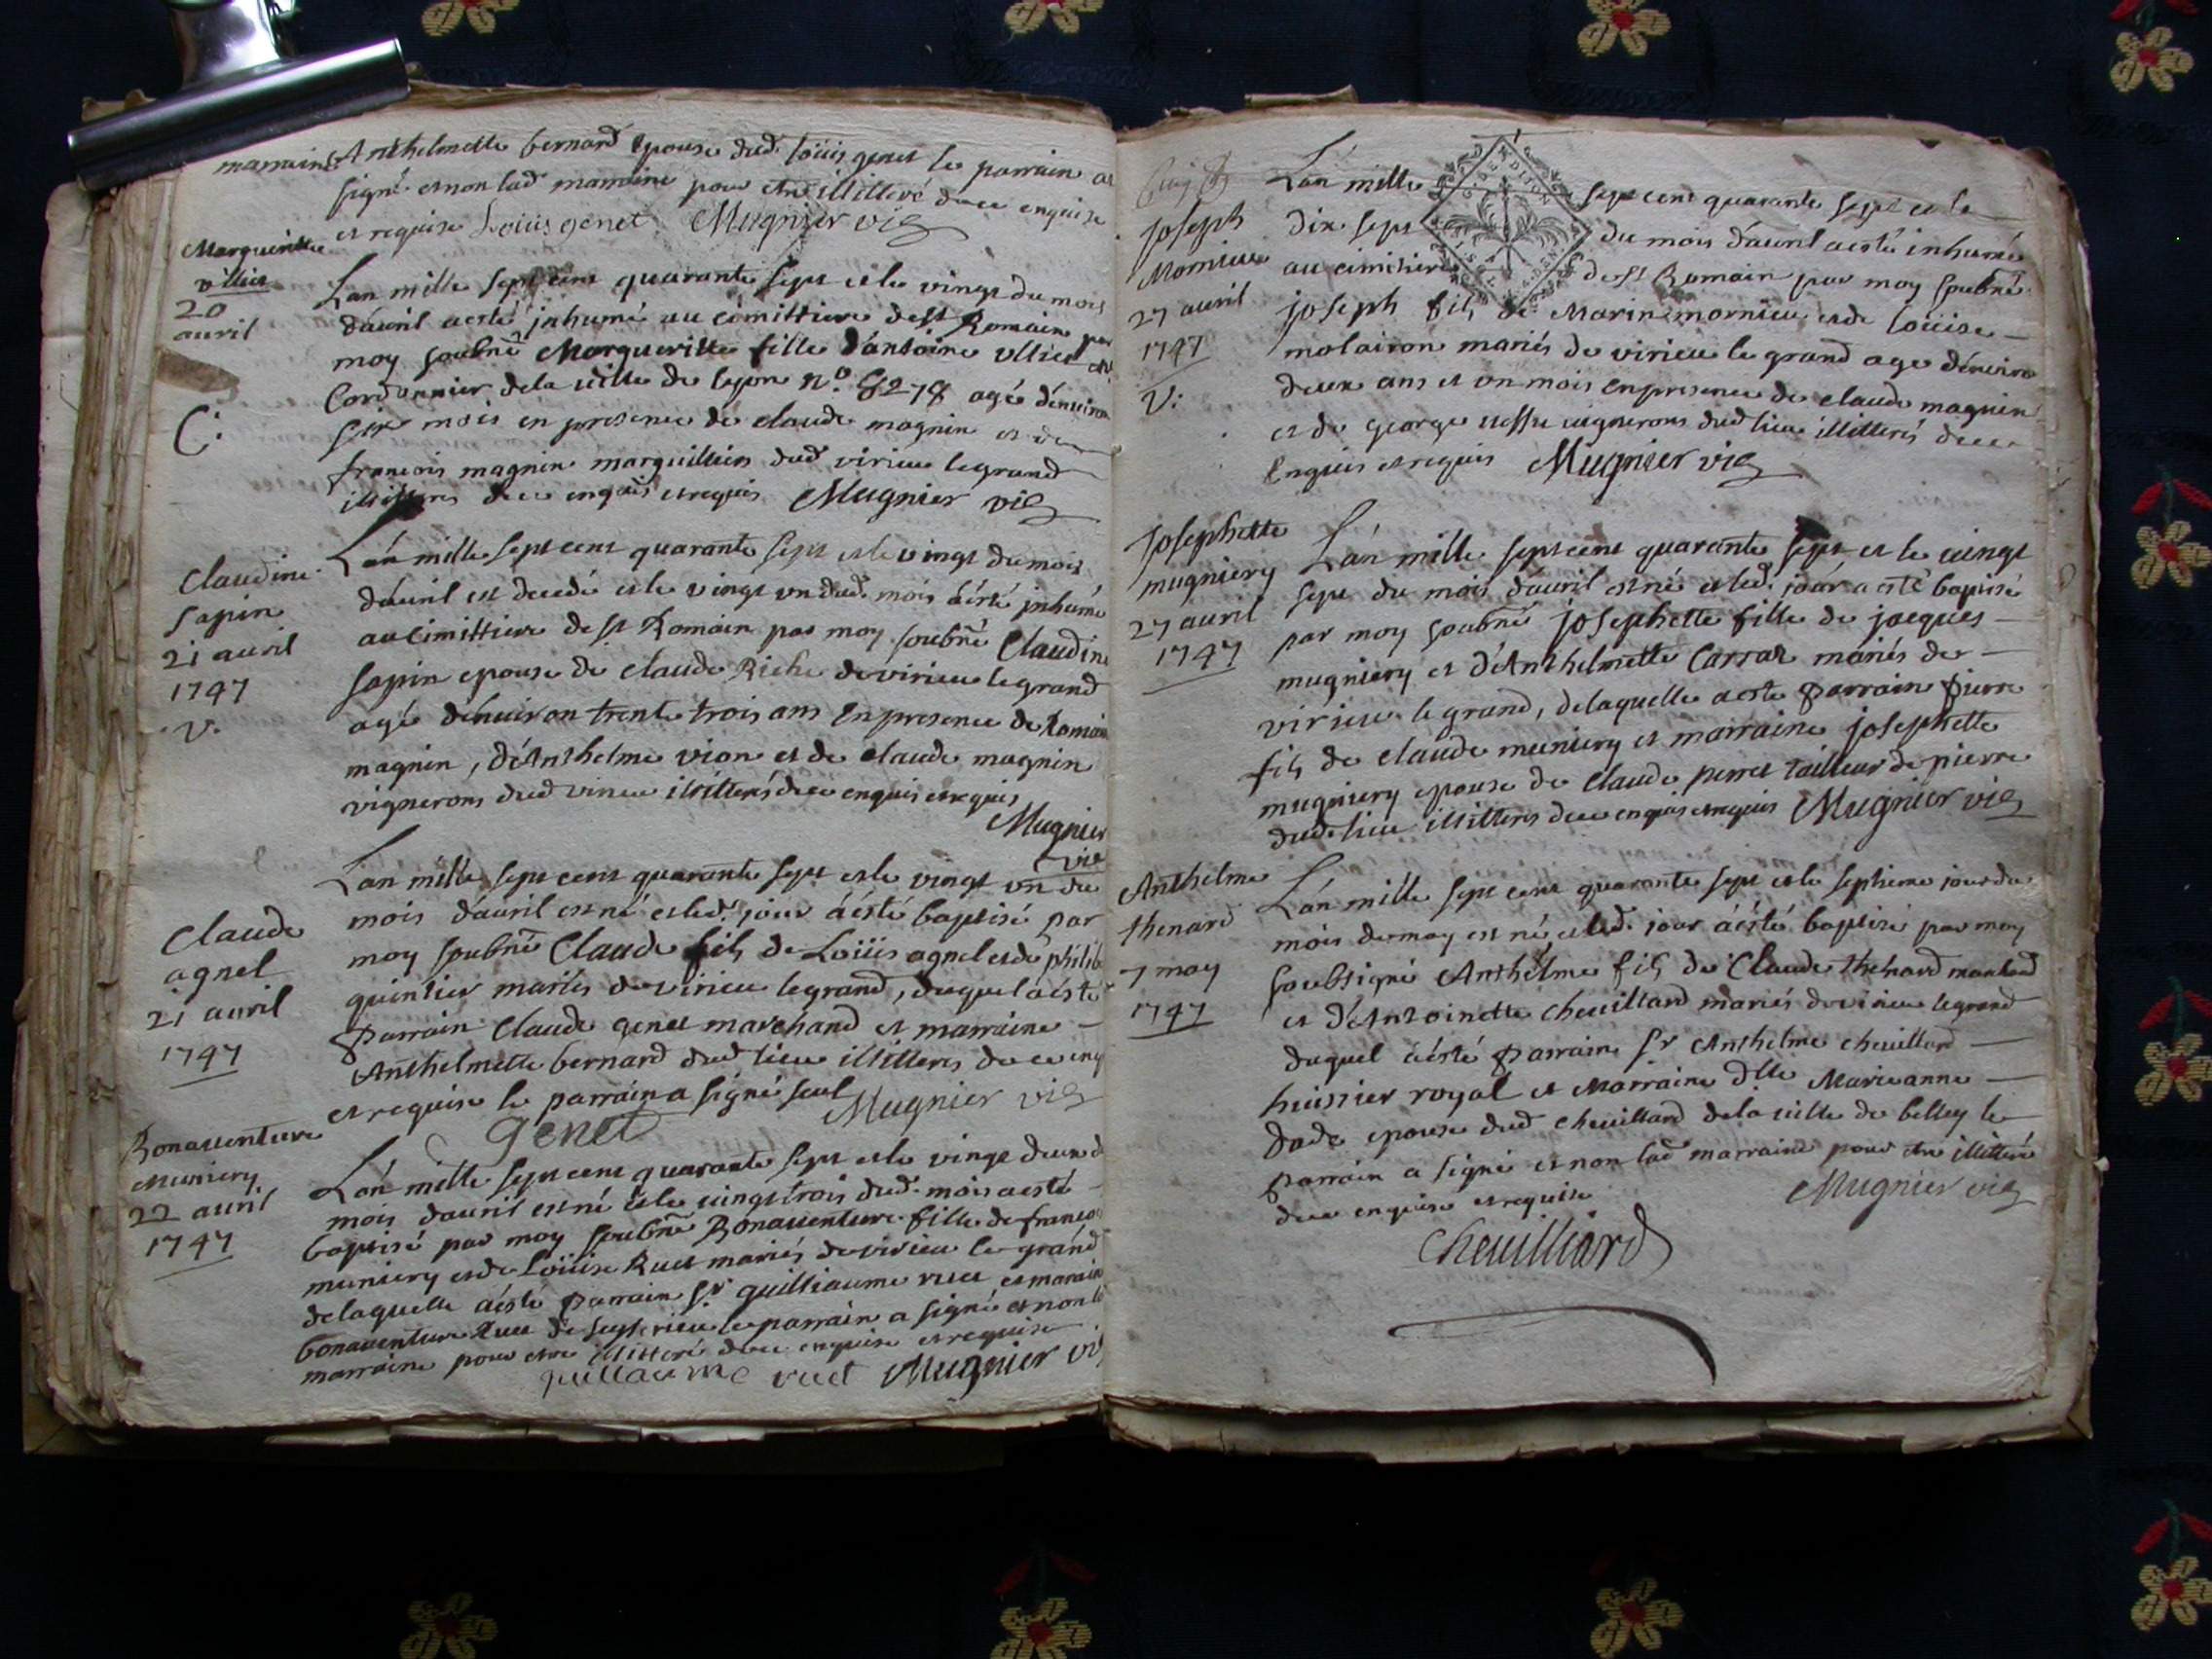 marraine Anthelmette bernard epouse dud. Loüis genet le parrain a
signé et non lad marraine pour etre illitteré de ce enquise
et requise Loüis genet Mugnier vic
Margueritte
20
avril
C.
Lan mille sept cent quarante sept et le vingt du mois
d'avril a esté jnhumé au cimittiere de st Romain par
moy soubné Margueritte fille d'antoine
Cordonnier de la ville de leyon n.o agé d'environ
six mois en presence de claude magnin et de
francois magnin marguilliers dud virieu le grand
illitteres de ce enquis et requis Mugnier vic
Claudine
sapin
21 avril
1747
V.
Lan mille sept cent quarante sept et le vingt du mois
d'avril est decedé et le vingt un dud. mois a esté jnhumé
au cimittiere de st Romain par moy soubné Claudine
sapin epouse de claude Riche de virieu le grand
agé d'environ trente trois ans En presence de Romain
magnin, d'Anthelme vion et de claude magnin
vignerons dud virieu illitterés de ce enquis et requis
Mugnier
vic
Claude
agnel
21 avril
1747
Lan mille sept cent quarante sept et le vingt un du
mois d'avril est né et led. jour a esté baptisé par
moy soubné Claude fils de Loüis agnel et de philib
quintier mariés de virieu le grand, duquel a esté
parrain Claude genet marchand et marraine
Anthelmette bernard dud lieu illitteres de ce enq
et requise le parrain a signé seul Mugnier vic
genet
Bonaventure
muniery
22 avril
1747
Lan mille sept cent quarante sept et le vingt deux d
mois d'avril est né et le vingt trois dud. mois a esté
baptisé par moy soubné Bonaventure fille de francois
muniery et de Loüise Ruet mariés de virieu le grand
de laquelle a esté parrain sr guilliaume ruet et marraine
bonaventure Ruet de le parrain a signé et non la
marraine pour etre illitteré de ce enquise et requise
guillaume ruet Mugnier vic
joseph
Mornieu
27 avril
1747
V.
Lan mille sept cent quarante sept et le
dix sept du mois d'avril a esté inhumé
au cimitiere de st Romain par moy soubné
joseph fils de Marin mornieu et de loüise
molairon mariés de virieu le grand agé d'environ
deux ans et un mois en presence de claude magnin
et de george vignerons dud lieu illitterés de ce
Enquis et requis Mugnier vic
josephette
mugniery
27 avril
1747
Lan mille sept cent quarante sept et le vingt
sept du mois d'avril est né et led. jour a esté baptisé
par moy soubné josephette fille de jacques
mugniery et d'Anthelmette Carraz mariés de
virieu le grand, de laquelle a esté parrain pierre
fils de claude muniery et marraine josephette
mugniery epouse de Claude perret tailleur de pierre
dud. lieu illitteres de ce enquis et requis Mugnier vic
Anthelme
thenard
7 may
1747
Lan mille sept cent quarante sept et le septieme jour du
mois de may est né et led. jour a esté baptisé par moy
soubsigné Anthelme fils de Claude thenard marchand
et d'Antoinette cheuillard mariés de virieu le grand
duquel a esté parrain sr Anthelme cheuillard
huissier royal et Marraine dlle Marieanne
epouse dud cheuillard de la ville de belley le
parrain a signé et non lad marraine pour etre illitteré
de ce enquise et requise Mugnier vic
Cheuilliard